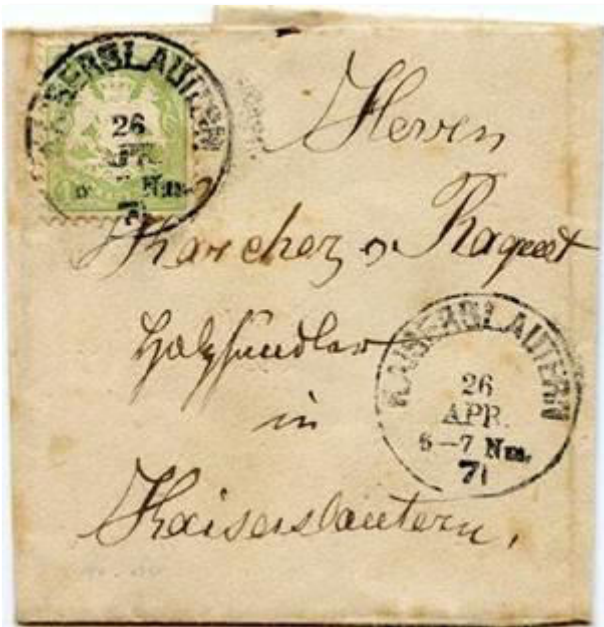 KAISERSLAUTERN
26
APR.
Nm.
71
Herren
Karcher & Raquet
Holzhändler
in
Kaiserslautern.
KAISERSLAUTERN
26
APR.
6-7 Nm.
71